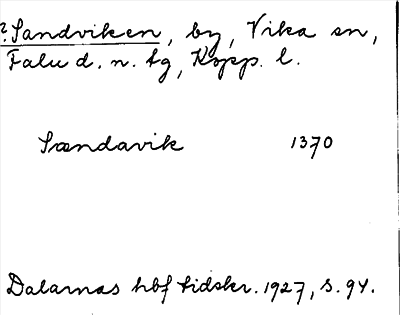 ?Sandviken, by, Vika sn,
Falu d. n. tg, Kopp. l.
Sændavik 1370
Dalarnas hbf tidskr. 1927, s. 94.